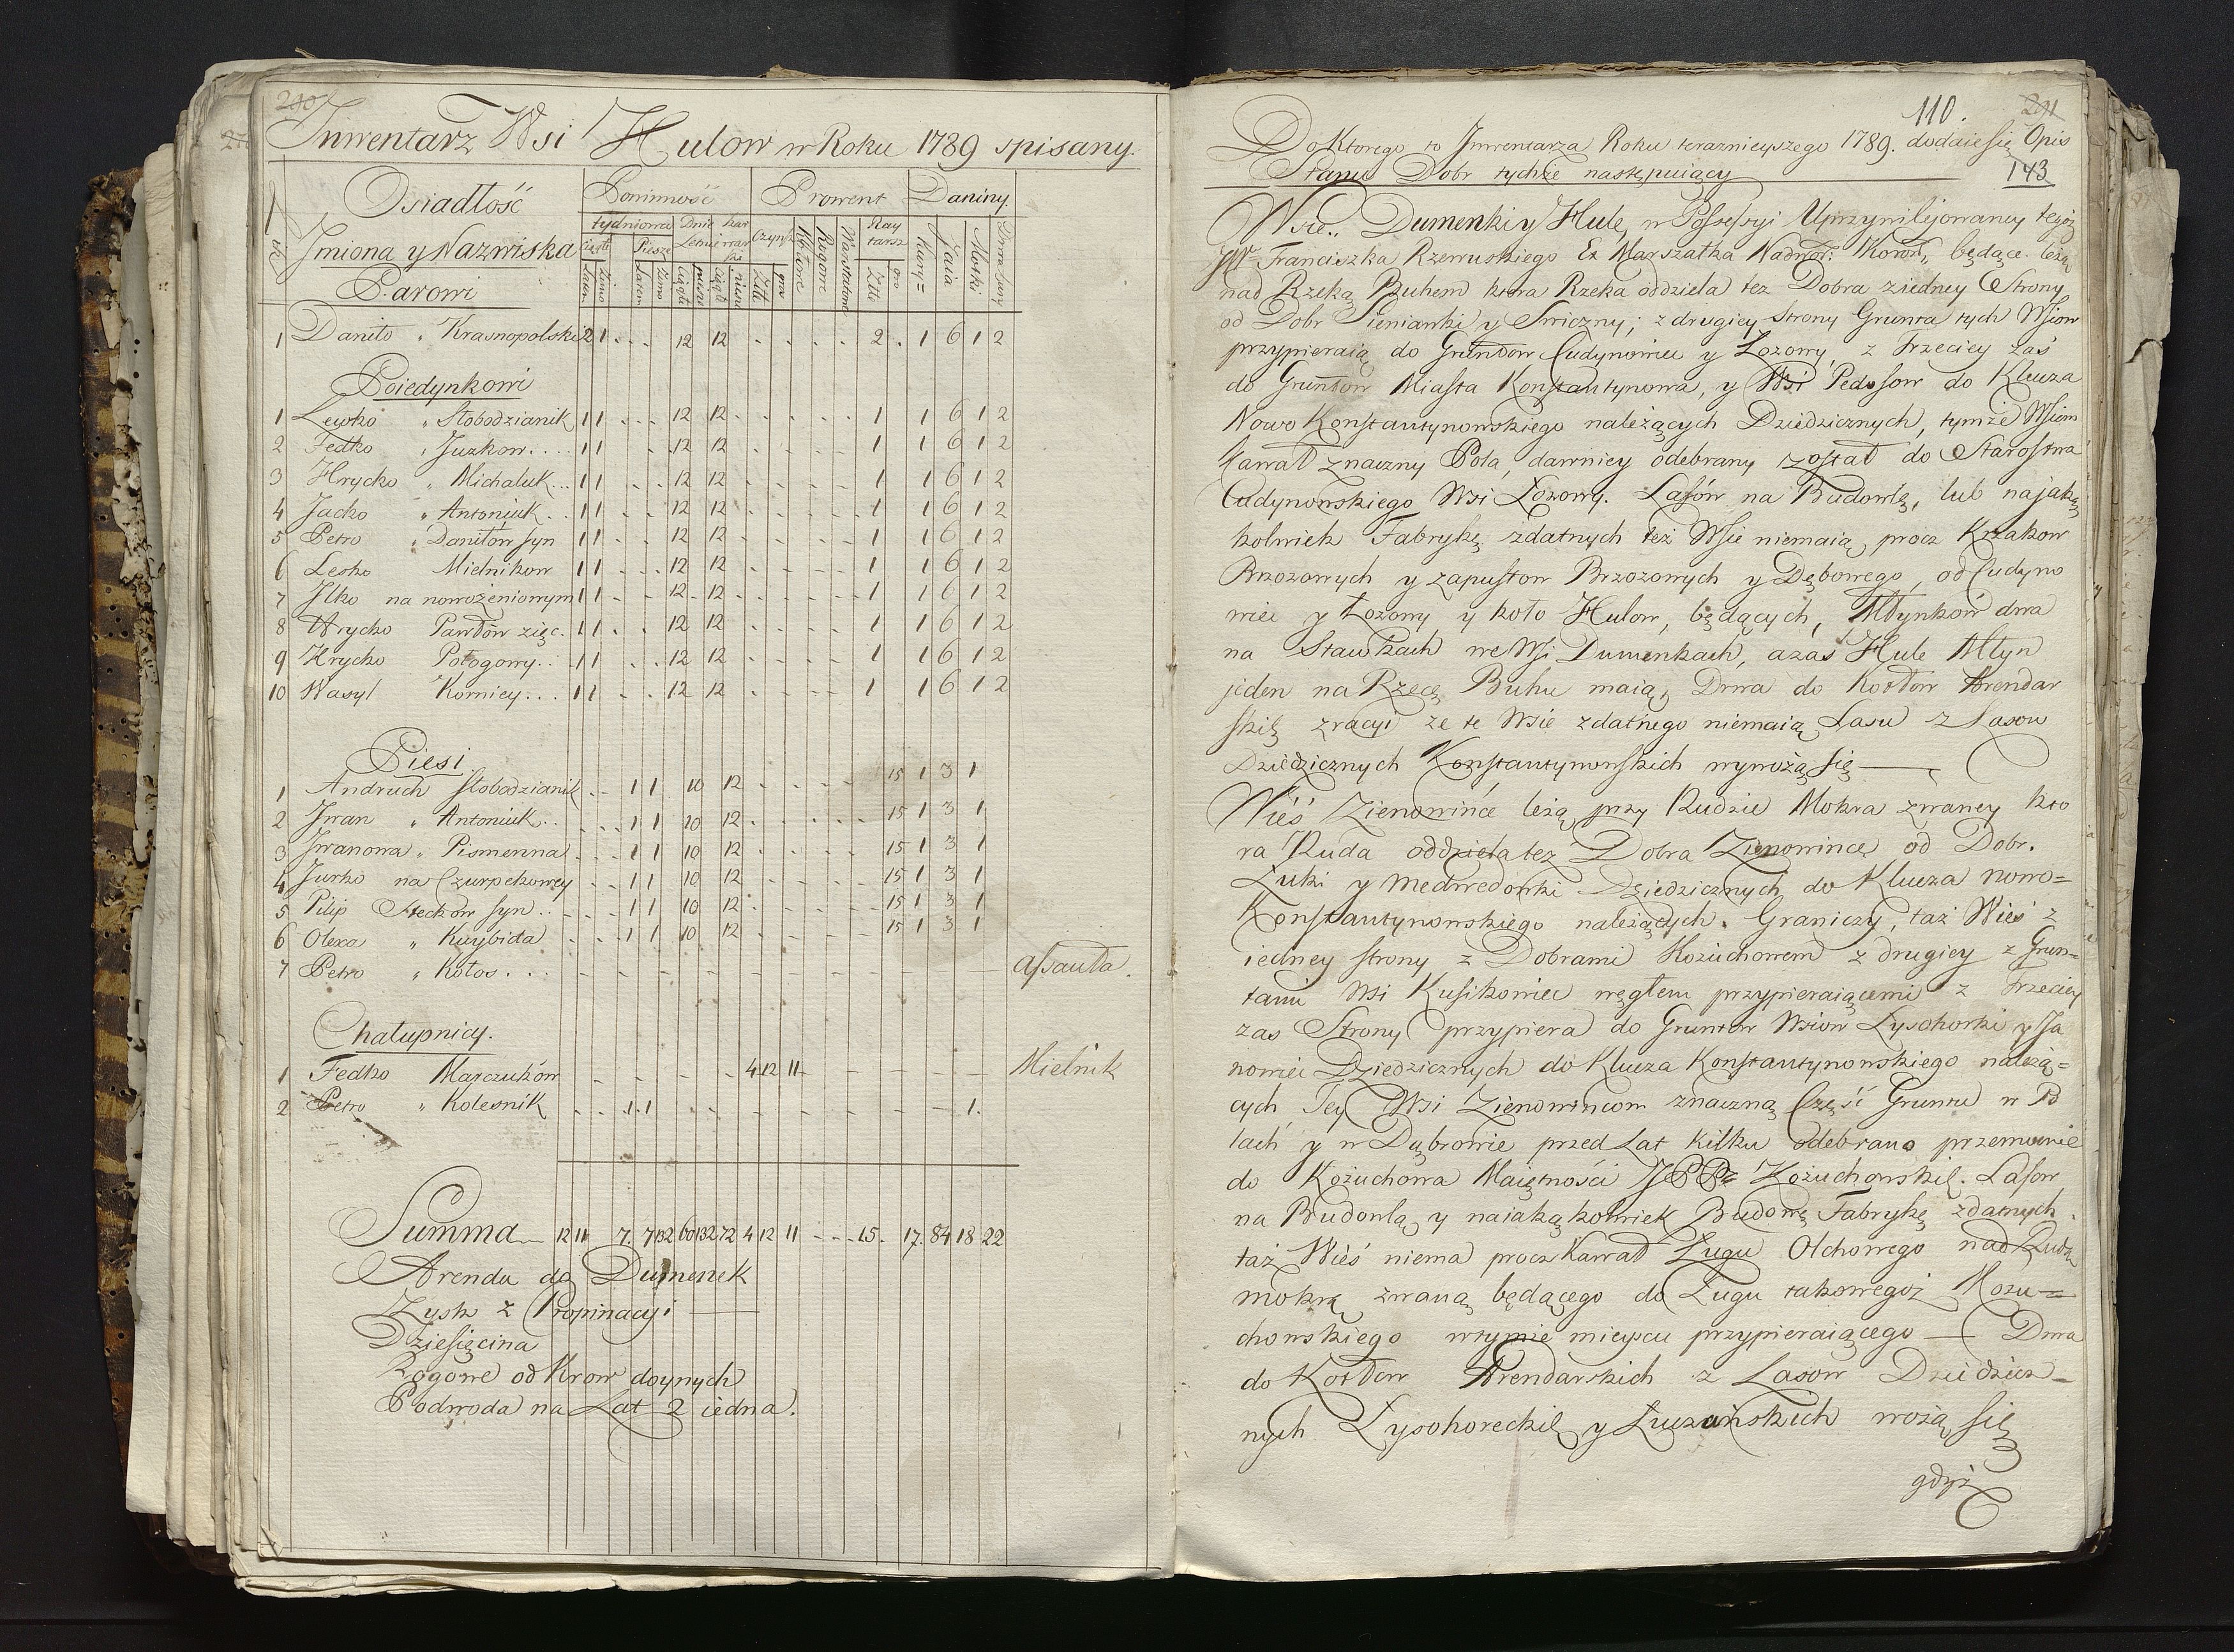 240
Inwentarz Wsi Hulow w Roku 1789 spisany.
Osiadłość
Imiona y Nazwiska
Powinność Prowent Daniny.
tydniowa Dnie Czynsz Rogowe Ray tarsz Kury= Jaia Motki
ciągłe Piesze Letnie
Latem Zimo Latem Zimo ciągłe piesze ciągłe piesze Złłt gro Złłt gro
Parowi
1 Daniło „ Krasnopolski 2 1 . . . 12 12 . . . . . 2 . 1 6 1 2
Poiedynkowi
1 Lewko „ Słobodzianik 1 1 . . . 12 12 . . . . . 1 1 6 1 2
2 Fedko „ Juzkow . . . . 1 1 . . 12 12 . . . . . 1 1 6 1 2
3 Hrycko „ Michaluk . . . 1 1 . . 12 12 . . . . . 1 1 6 1 2
4 Jacko „ Antoniuk . . 1 1 . . 12 12 . . . . . 1 1 6 1 2
5 Petro „ Daniłów syn 1 1 . . 12 12 . . . . . 1 1 6 1 2
6 Lesko Mielnikow 1 1 . . . 12 12 . . . . . 1 1 6 1 2
7 Ilko na nowożeniowym 1 1 . . 12 . 12 . . . . . 1 1 6 1 2
8 Hrycko Pawłów zięc . 1 1 . . 12 12 . . . . . 1 1 6 1 2
9 Hrycko Połogowy . . 1 1 . . 12 12 . . . . . 1 1 6 1 2
10 Wasyl Korniey . . . 1 1 . . 12 12 . . . . . 1 1 6 1 2
Piesi
1 Andruch Słobodzianik . . 1 1 10 12 . . . . . 15 1 3 1
2 Iwan „ Antoniuk . . . . . 1 1 10 12 . . . . . . 15 1 3 1
3 Iwanowa „ Pismenna . . . 1 1 10 12 . . . . . 15 1 3 1
4 Jurko na Czurpekowey . . 1 1 10 12 . . . . . 15 1 3 1
5 Pilip Steckow syn . . . . . 1 1 10 12 . . . . . 15 1 3 1
6 Olexa „ Kuybida . . . 1 1 10 12 . . . . . 15 1 3 1
7 Petro „ Kołos . . . - - - - - - - - - - - - - - assauła.
Chałupnicy.
1 Fedko Marczuków - - - - - 4 12 11 - - - - - - Mielnik
2 Petro „ Kolesnik . . 1. 1 . . - - - - - - - 1.
Summa — 12 11 7. 7 132 60 132 72 4 12 11 - - - 15. 17. 84 18 22
Arenda do Dumenek
Zysk z Propinacyi ——
Dziesięcina
Rogowe od Krow doynych
Podwoda na Lat 2 iedna.
110. 241
Do Ktorego to Inwentarza Roku teraznieyszego 1789. dodaie się Opis
Stanu Dobr tychże następuiący 143
Wsie „ Dumenki y Hule, w Possessyi Uprzywilejowaney tegoż
JW Franciszka Rzewuskiego Ex Marszałka Nadwor: Koron, będące leżą
nad Rzeką Buhem ktora Rzeka oddziela też Dobra z iedney Strony
od Dobr Sieniawki y Swiczny; z drugiey Strony Grunta tych Wsiow
przypieraią do Gruntow Cudynowiec y Łozowy, z trzeciey zaś
do Gruntow Miasta Konstantynowa, y Wsi Pedosow do Klucza
Nowo Konstantynowskiego należących Dziedzicznych, tymże Wsiom
Kawał znaczny Pola, dawniey odebrany został do Starostwa
Cudynowskiego Wsi Łozowy. Lasów na Budowlę, lub na jaką
kolwiek Fabrykę zdatnych też Wsie niemaią, procz Krzakow
Brzozowych y zapustow Brzozowych y Dębowego, od Cudyno
wiec y Łozowy y koło Hulow, będących, Młynków dwa
na Stawkach we Wsi Dumenkach, a zaś Hule Młyn
jeden na Rzece Buhu maią, Drwa do Kotłow Arendar
skich z racyi że te Wsie zdatnego niemaią Lasu z Lasow
Dziedzicznych Konstantynowskich wywożą się ——
Wieś Zienowińce leżą przy Rudzie Mokra zwaney kto
ra Ruda oddziela też Dobra Zienowince od Dobr.
Łuki y Medwedowki Dziedzicznych do Klucza nowo=
Konstantynowskiego należących. Graniczy, taż Wieś z
iedney strony z Dobrami Kożuchowem z drugiey z Grun=
tami Wsi Kusikowiec węgłem przypieraiącemi z trzeciey
zas Strony przypiera do Gruntow Wsiow Łysohorki y Ja
nowiec Dziedzicznych do Klucza Konstantynowskiego należą=
cych Tey Wsi Zienowincom znaczną Część Gruntu w Po
lach y w Dąbrowie przed Lat kilku odebrano przemocnie
do Kożuchowa Maiętności Kożuchowskich. Lasow
na Budowlą y naiakąkolwiek Budowę Fabrykę zdatnych
taż Wieś niema procz Kawał Ługu Olchowego nad Rudą
mokrą zwaną będącego do Ługu takowegoż Kozu=
chowskiego wtymże mieyscu przypieraiącego — Drwa
do Kotłow Arendarskich z Lasow Dziedzicz=
nych Łysohoreckich y Łuczańskich wożą się
gdyż